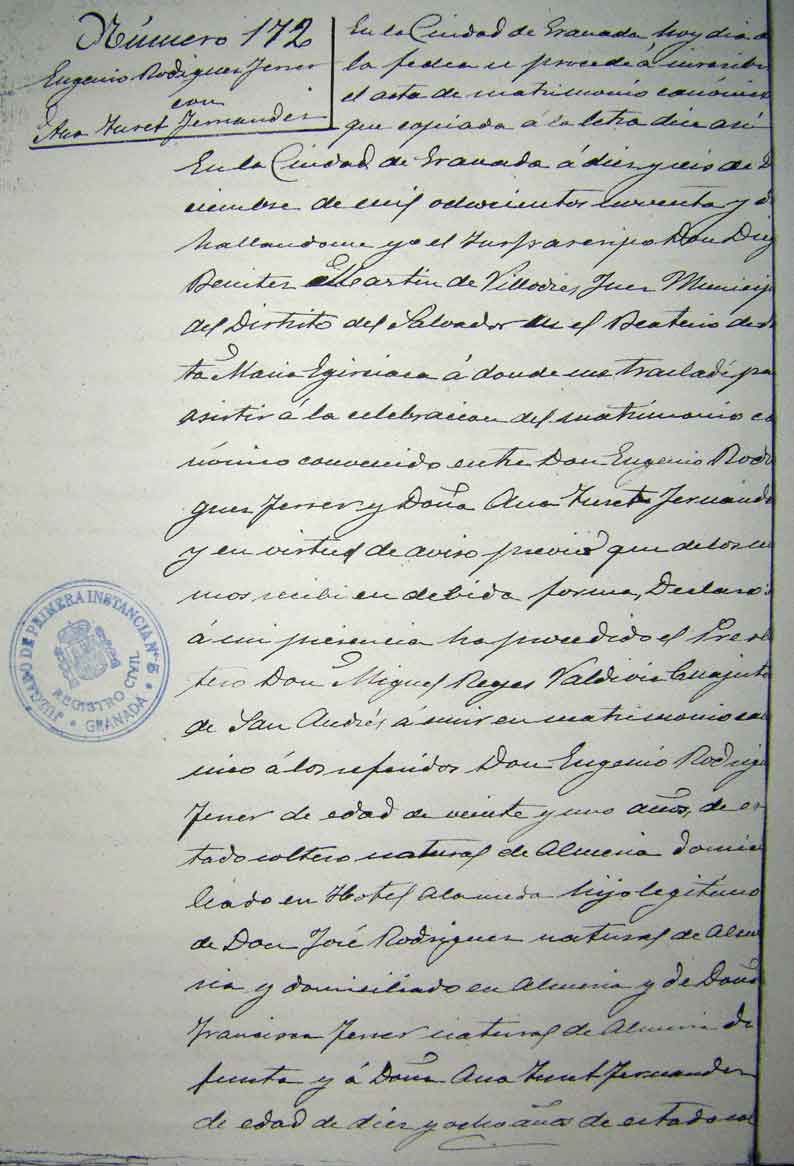 Número 172
Eugenio Rodriguez Ferrer
con
Ana Turet Fernandez
En la Ciudad de Granada hoy dia d
la fecha se procede á inscribir
el acta de matrimonio canónico
que copiada á la letra dice asi
En la Ciudad de Granada á diez y seis de D
ciembre de mil ochocientos noventa y d
hallandome yo el Don Dieg
Benitez Martin de Villodres, Juez Municip
del Distrito del Salvador en el Beaterio de S
ta Maria Egipciaca á donde me trasladé pa
asistir á la celebracion del matrimonio ca
nónico convenido entre Don Eugenio Rodri
guez Ferrer y Doña Ana Turet Fernande
y en virtud de aviso previo que de los
mos recibi en debida forma, Declaro:
á mi presencia ha procedido el Presbi
tero Don Miguel Reyes Valdivia Coadjutor
de San Andrés á unir en matrimonio ca
nico á los referidos Don Eugenio Rodrigu
Ferrer de edad de veinte y uno años, de es
tado soltero natural de Almeria domici
liado en Hotel Alameda hijo legitimo
de Don José Rodriguez natural de Alme
ria y domiciliado en Almeria y de Doña
Francisca Ferrer natural de Almeria di
funta y á Doña Ana Turet Fernandez
de edad de diez y ocho años de estado sol
JUZGADO DE PRIMERA INSTANCIA Nº 5
REGISTRO CIVIL
GRANADA